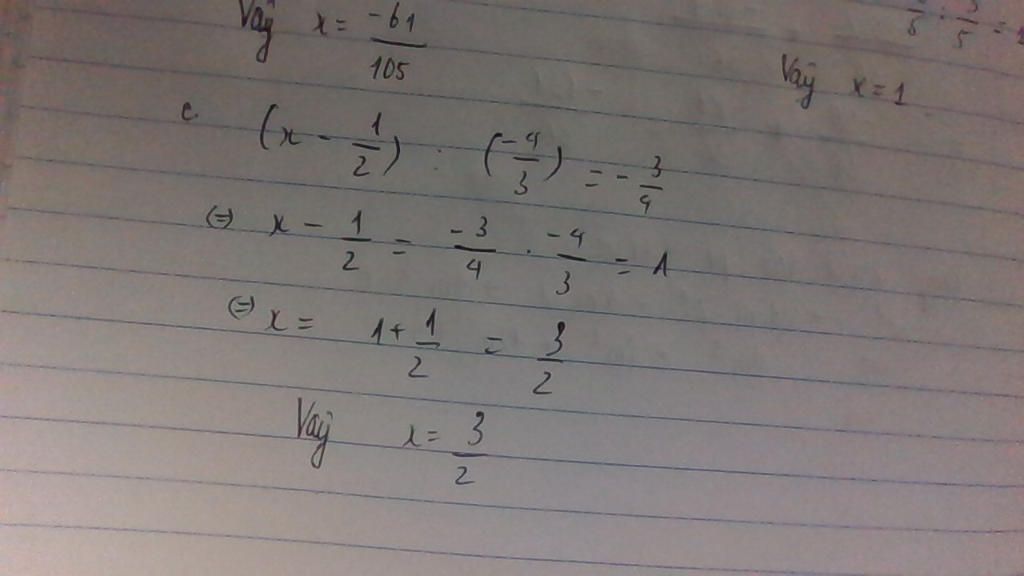 Vậy x = -61/105
: 3/5 =
Vậy x = 1
c. (x - 1/2) : (-4/3) = - 3/4
(=) x - 1/2 = -3/4 . -4/3 = 1
(=) x = 1 + 1/2 = 3/2
Vậy x = 3/2